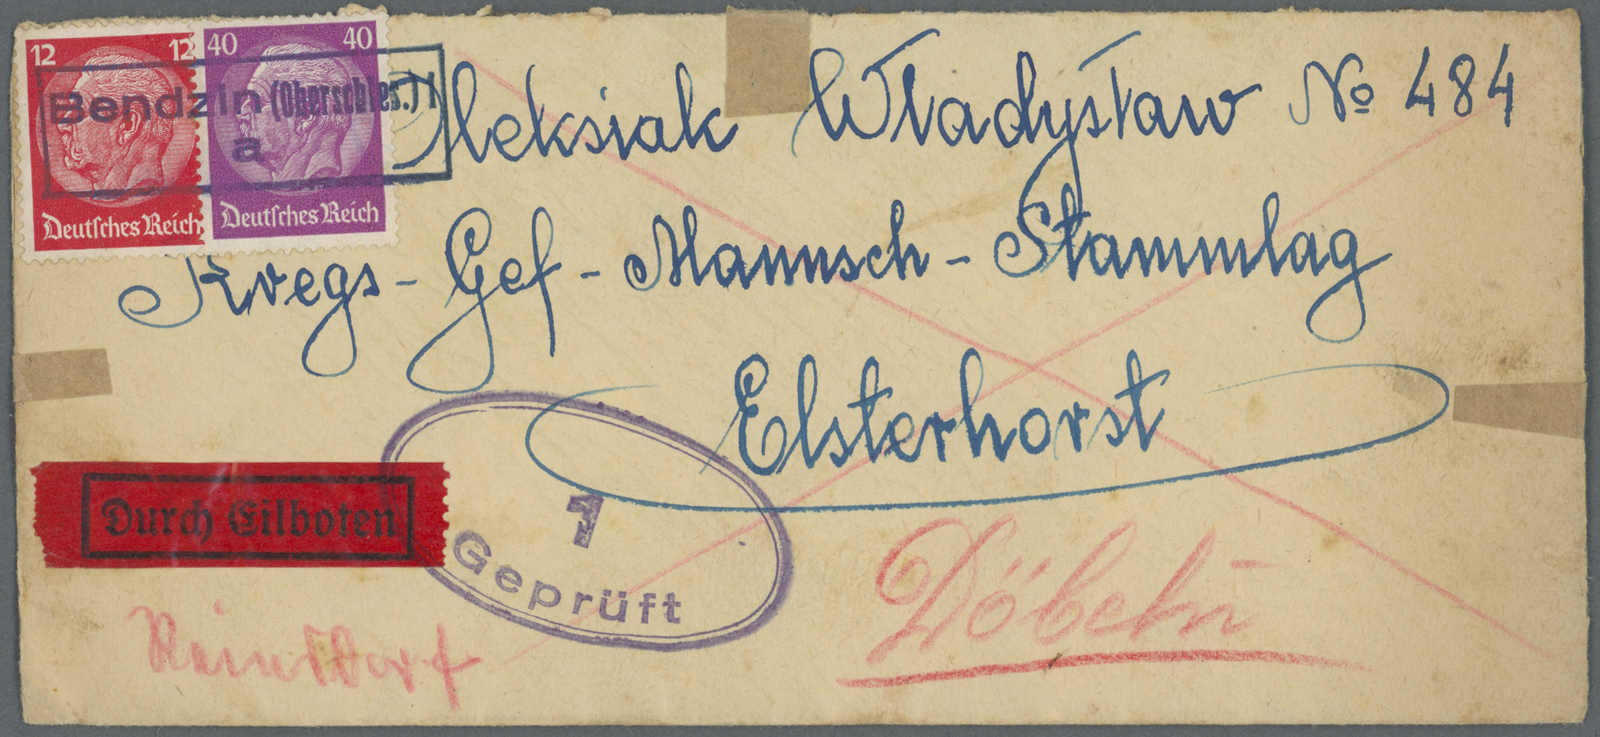 12 12 40 40
Bendzin (Oberschles.) 1
a
Deutsches Reich Deutsches Reich
Oleksiak Władysław № 484
Kregs - Gef - Mannsch - Stammlag
Elsterhorst
Durch Eilboten
1
Geprüft
Döbeln
Reinsdorf